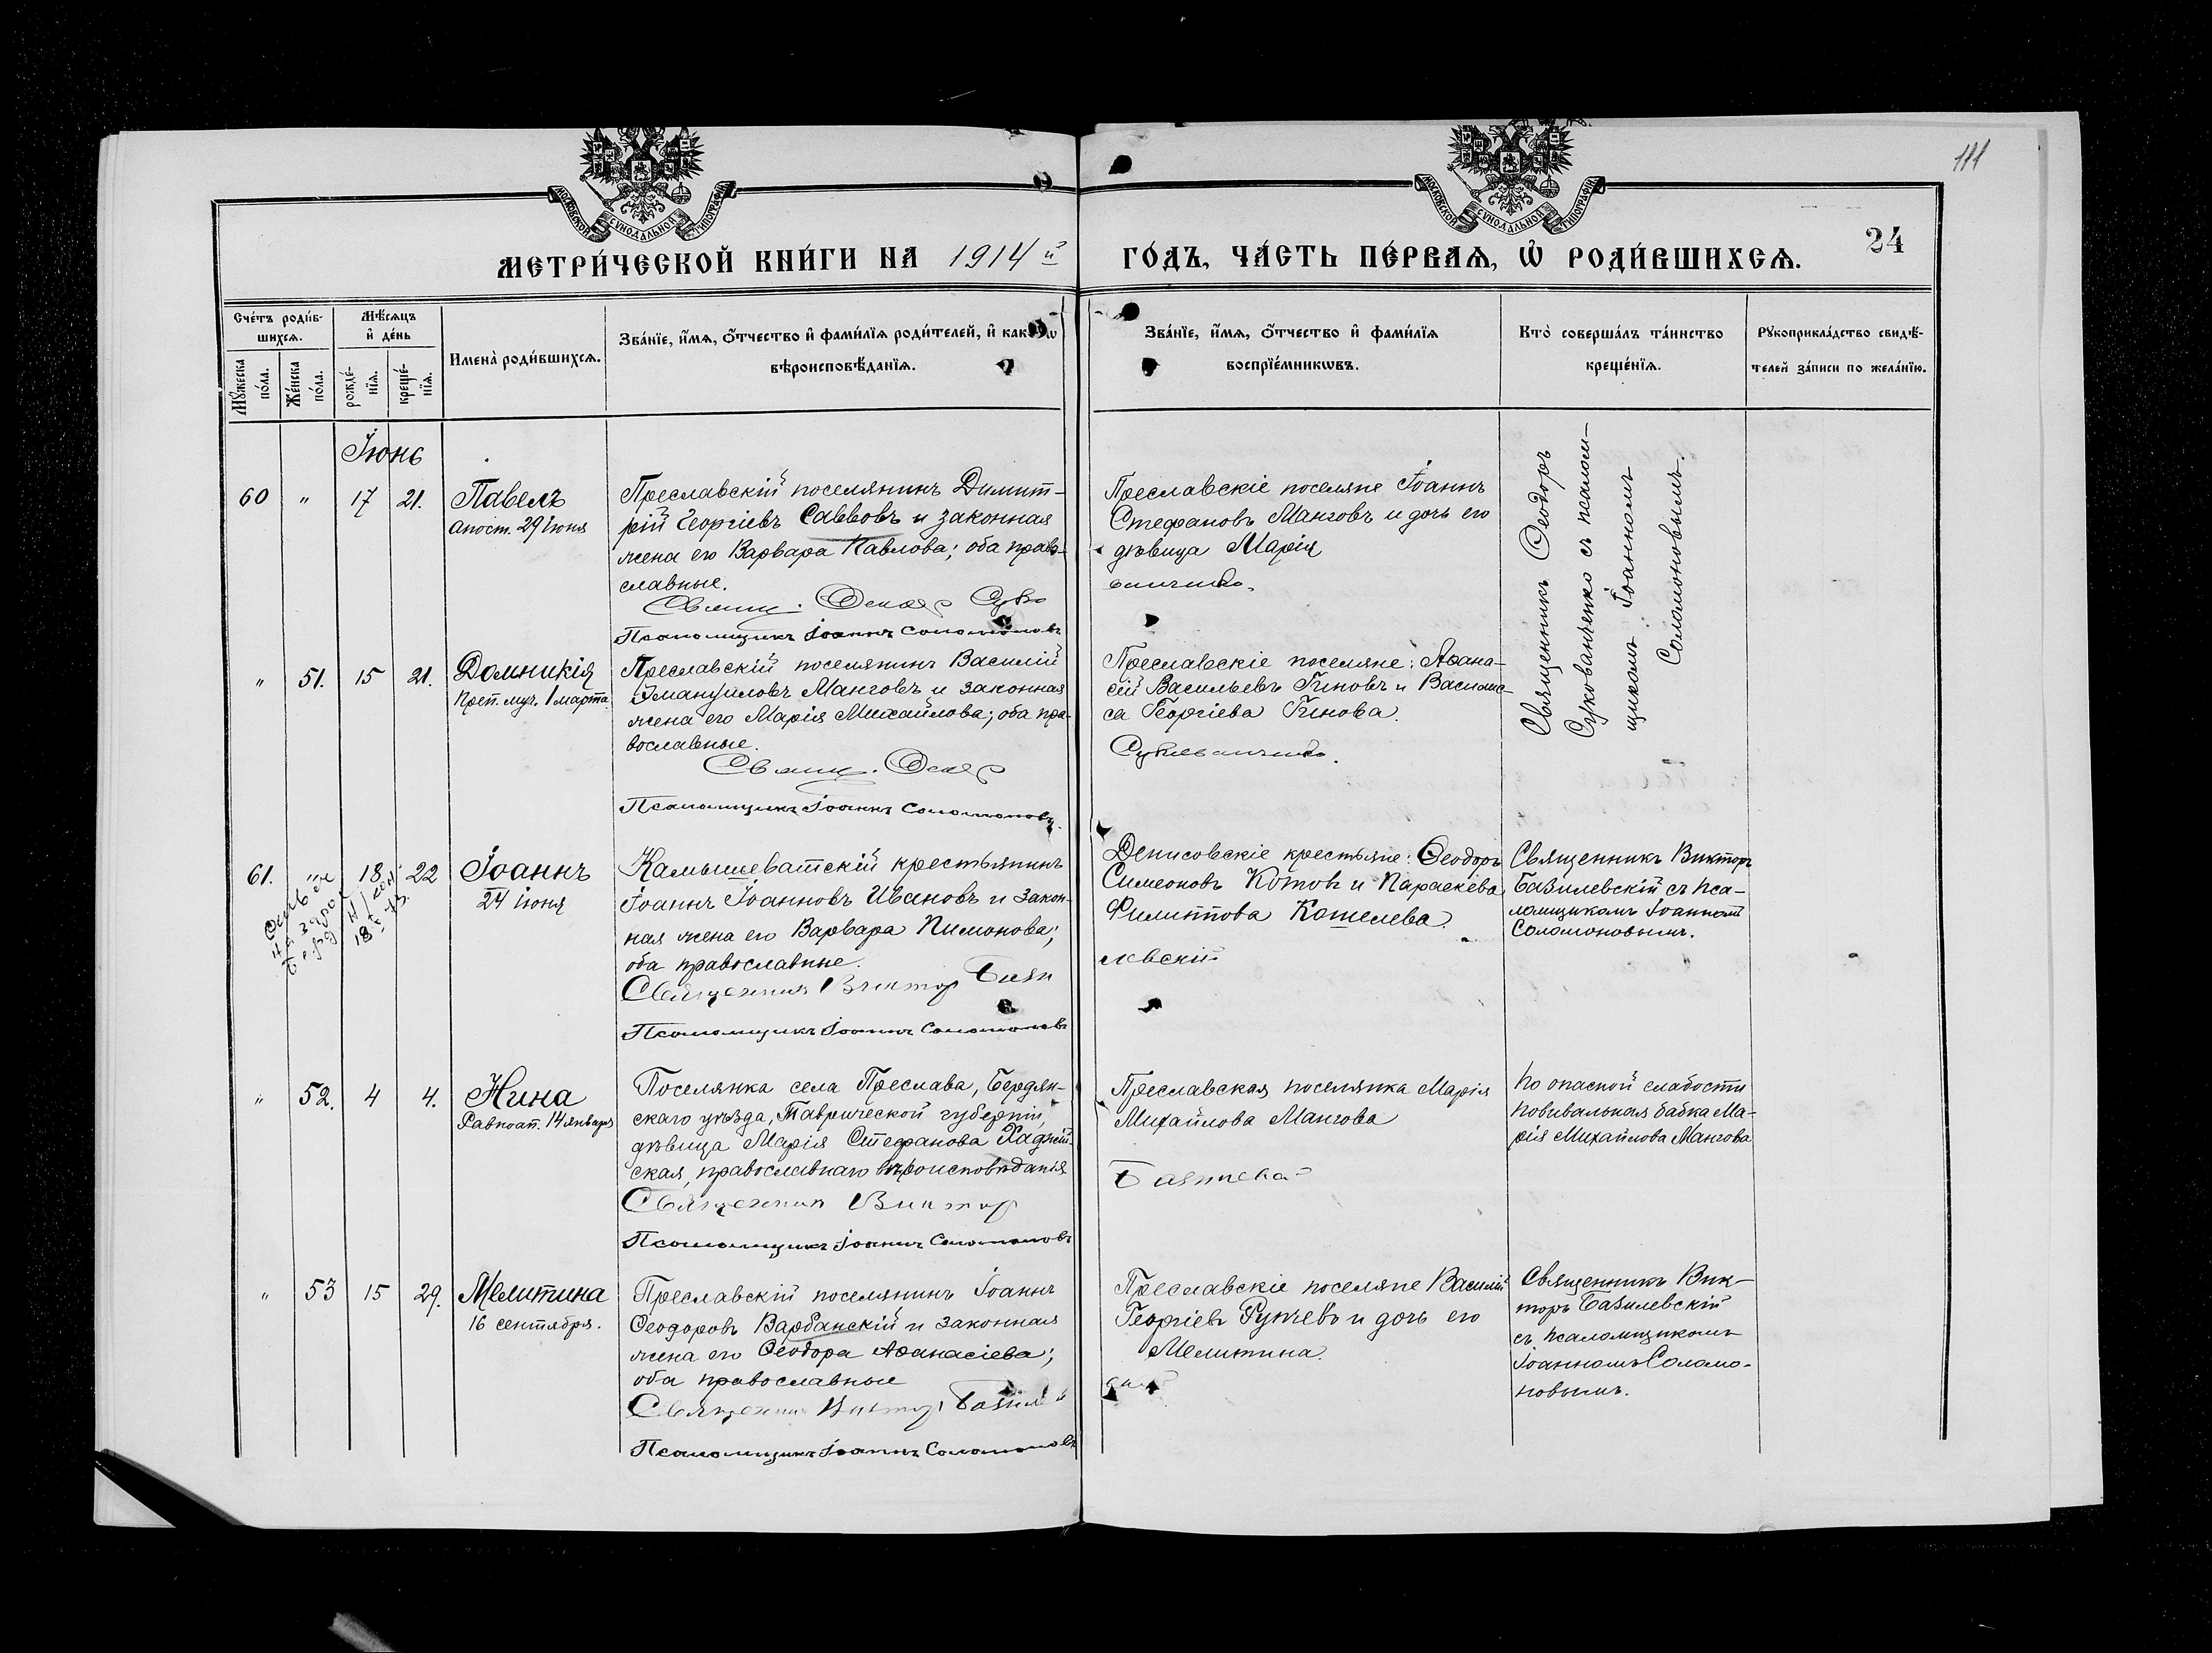 111
МОСКОВСКОЙ СѴНОДАЛЬНОЙ ТИПОГРАФІИ
МОСКОВСКОЙ СѴНОДАЛЬНОЙ ТИПОГРАФІИ
МЕТРИ́ЧЕСКОЙ КНИ́ГИ НА 1914й ГО́ДЪ, ЧА́СТЬ ПЕ́РВАѦ, Ѡ҆ РОДИ́ВШИХСѦ.
24
Сче́тъ роди́в-
шихсѧ.
Мꙋ́жеска
по́ла.
Же́нска
по́ла.
Мѣ́сѧцъ
и҆ де́нь
рожде́-
нїѧ.
креще́-
нїѧ.
Имена̀ роди́вшихсѧ.
Зва́нїе, и҆́мѧ, ѻ҆́тчество и҆ фами́лїѧ роди́телей, и҆
вѣроисповѣ́данїѧ.
Зва́нїе, и҆́мѧ, ѻ҆́тчество и҆ фами́лїѧ
воспрїе́мникѡвъ.
Кто̀ соверша́лъ та́инство
креще́нїѧ.
Рꙋкоприкла́дство свидѣ́-
телей за́писи по жела́нїю.
Іюнь
60 " 17 21.
Павелъ
апост. 29 іюня
Преславскій поселянинъ Димит-
рій Георгіевъ Саввовъ и законная
жена его Варвара Павлова; оба право-
славные.
Свящ. Ѳеодоръ Суко
Псаломщикъ Іоаннъ Соломоновъ
Преславскіе поселяне Іоаннъ
Стефановъ Манговъ и дочь его
дѣвица Марія
Священникъ Ѳеодоръ
Сукованченко съ псалом-
щикомъ Іоанномъ
Соломоновымъ.
" 51. 15 21.
Домникія
преп. муч. 1 марта
Преславскій поселянинъ Василій
Эмануиловъ Манговъ и законная
жена его Марія Михайлова; оба пра-
вославные.
Свящ. Ѳеод
Псаломщикъ Іоаннъ Соломоновъ.
Преславскіе поселяне: Аѳана-
сій Васильевъ Гиновъ и Василис-
са Георгіева Гинова.
Сукованченко.
61. " 18 22
Іоаннъ
24 іюня
Камышеватскій крестьянинъ
Іоаннъ Іоанновъ Ивановъ и закон-
ная жена его Варвара Пимонова;
оба православные.
Священникъ Викторъ Бази
Псаломщикъ Іоаннъ Соломоновъ
Денисовскіе крестьяне: Ѳеодоръ
Симеоновъ Котовъ и Параскева
Филиппова Кошелева.
левскій
Священникъ Викторъ
Базилевскій съ пса-
ломщикомъ Іоанномъ
Соломоновымъ.
" 52. 4 4.
Нина
Равноап. 14 января
Поселянка села Преслава, Бердян-
скаго уѣзда, Таврической губерніи,
дѣвица Марія Стефанова Хаджій-
ская, православнаго вѣроисповѣданія
Священникъ Викторъ
Псаломщикъ Іоаннъ Соломоновъ
Преславская поселянка Марія
Михайлова Мангова
По опасной слабости
повивальная бабка Ма-
рія Михайлова Мангова
" 53 15 29.
Мелитина
16 сентября.
Преславскій поселянинъ Іоаннъ
Ѳеодоровъ Варбанскій и законная
жена его Ѳеодора Аѳанасіева;
оба православные
Священникъ Викторъ Базилев
Псаломщикъ Іоаннъ Соломоновъ
Преславскіе поселяне Василій
Георгіевъ Ружевъ и дочь его
Мелитина.
Священникъ Вик-
торъ Базилевскій
съ псаломщикомъ
Іоанномъ Соломо-
новымъ.